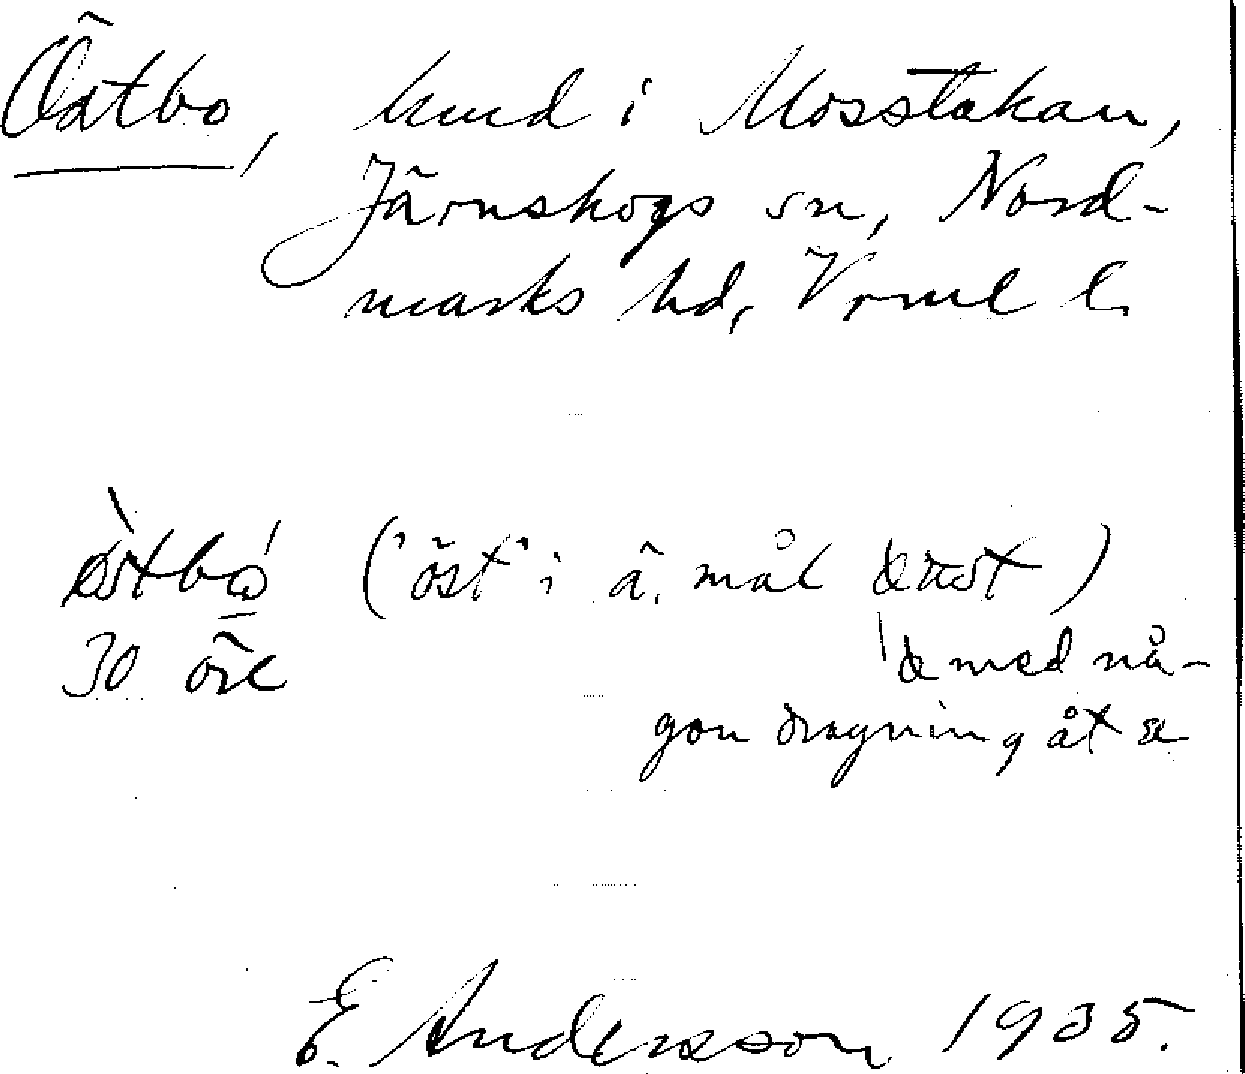 Östbo, hmd i Mosstakan,
Järnskogs sn, Nord-
marks hd, Vrml l.
("öst" i ä. mål
30 öre
med nå-
gon dragning åt æ
E. Andersson 1935.